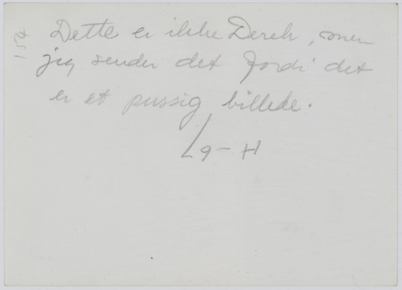 Dette er ikke Derek, men
jeg sender det fordi det
er et pussig billede.
L9-H
154